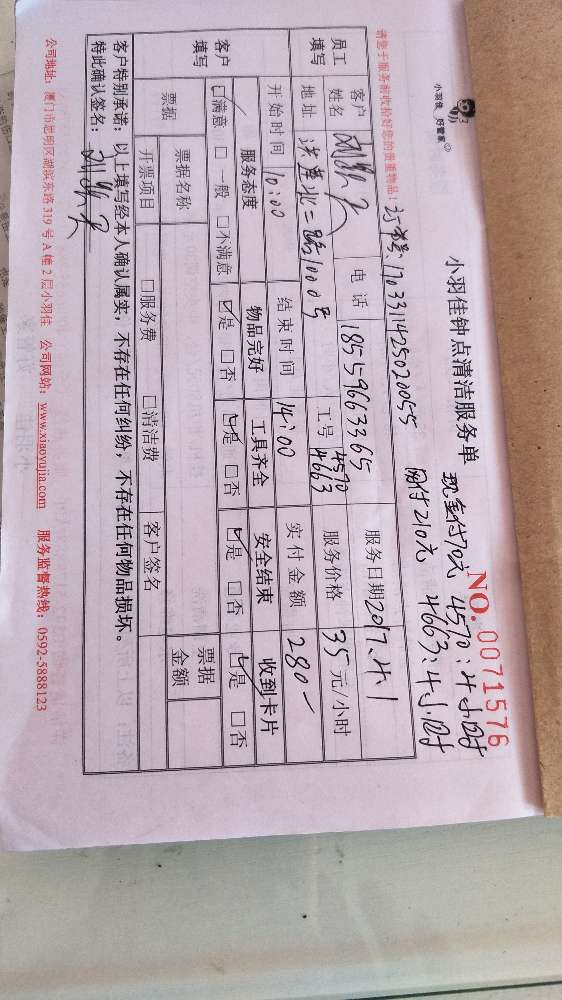 小羽佳 好管家
小羽佳钟点清洁服务单
NO. 0071576
现金付70元 4570:4小时
网付210元 4663:4小时
请您于服务前收拾好您的贵重物品!
订单号:1703311425020055
服务日期 2017.4.1
员工填写
客户姓名
电话 18559663365
工号 4570 4663
服务价格 35元/小时
地址 洪莲北二路1000号
开始时间 10:00 结束时间 14:00 实付金额 280-
客户填写
服务态度 物品完好 工具齐全 安全结束 收到卡片
☑满意 □一般 □不满意 ☑是 □否 ☑是 □否 ☑是 □否 ☑是 □否
票据
票据名称 票据金额
开票项目 □服务费 □清洁费 客户签名
客户特别承诺:以上填写经本人确认属实,不存在任何纠纷,不存在任何物品损坏。
特此确认签名:
公司地址:厦门市思明区湖滨东路319号A幢2层小羽佳 公司网站:www.xiaoyujia.com 服务监督热线:0592-5888123